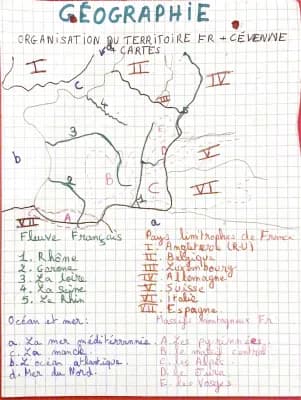 GÉOGRAPHIE
ORGANISATION DU TERRITOIRE FR + CÉVENNE
CARTES
I
II
III
IV
V
VI
VII
a
b
c
d
1
2
3
4
A
B
C
D
E
Fleuve Français
1. Rhône
2. Garone
3. La loire
4. La Seine
5. Le Rhin
Pays limitrophes de France
I Angleterre (R-U)
II Belgique
III Luxembourg
IV Allemagne
V Suisse
VI Italie
VII Espagne
Océan et mer:
a. La mer méditérrannée
c. La manche
b. L'océan atlantique.
d. Mer du Nord.
Massifs montagneux Fr
A. Les pyrinnées.
B. le massif central
C. les Alpes
D. le Jura
E. les Vosges